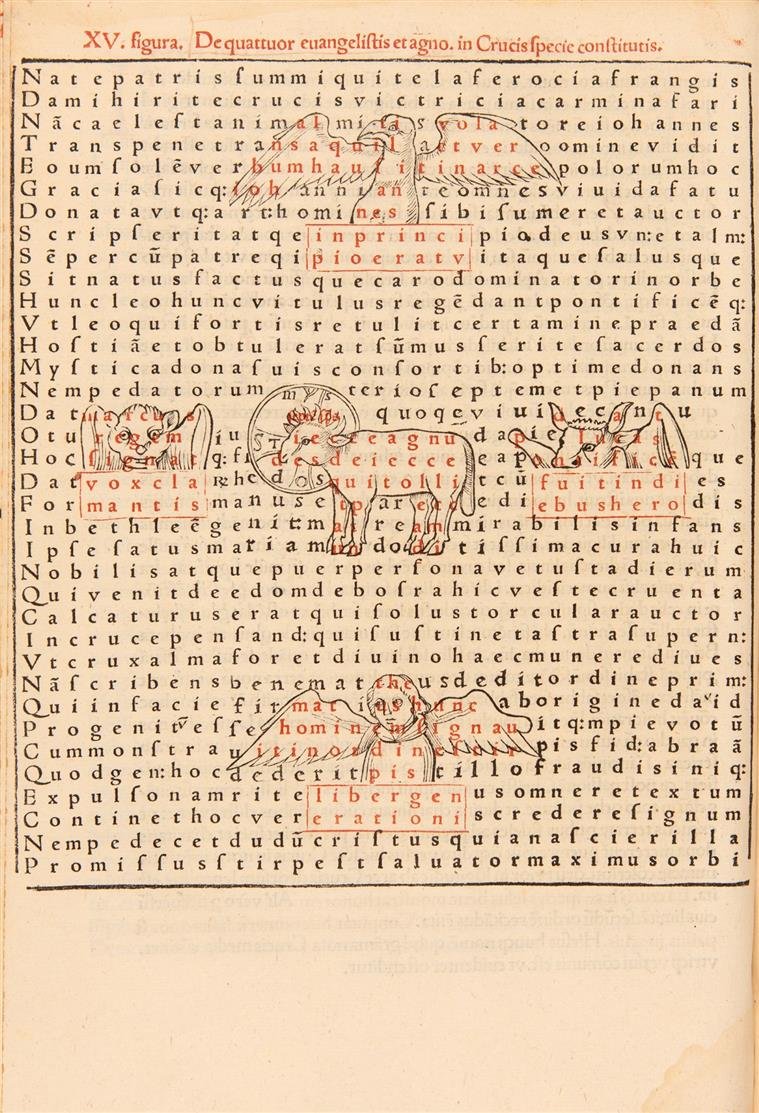 XV. figura. De quattuor euangeliſtis et agno. in Crucis ſpecie conſtitutis.
Natepatrisſummiquitelaferociafrangis
Damihiritecruciſvictriciacarminafari
Nãcaeleſtanimalmiſſisvolatoreiohannes
Tranſpenetranſaquilaetveroominevidit
Eoumſolẽverbumhauſitinarcepolorumhoc
Graciaſicq:iohanniante omneſviuidafatu
Donatavtq:art:hominesſibiſumeretauctor
Scripſeritatqeinprincipiodeusvn:etalm:
Sẽpercũpatreqipioeratvitaqueſalusque
Sitnatusfactusquecarodominatorinorbe
Huncleohuncvitulusregẽdantpontificẽq:
Vtleoquifortisretulitcertaminepraedã
Hoſtiãetobtuleratſũmusſeriteſacerdos
Myſticadonaſuisconſortib:optimedonans
Nempedatorum myſ terioſeptemetpiepanum
Datmarcus quoqẽviuidecantu
Oturegem iu ST iecceagnu dapielucas
Hocſignatq:fi desdeiecce eapontificẽque
Datvoxcla rhedosquitolli tcũfuitindies
Formantismanuse tparete ediebusherodis
Inbethleẽgenitmatreammirabilisinfans
Ipſeſatusmariammundodit iſſimacurahuic
Nobilisatquepuerperſonavetuſtadierum
Quivenitdeedomdeboſrahicveſtecruenta
Calcaturuseratquiſolustorcularauctor
Incrucepenſand:quiſuſtinetaſtraſupern:
Vtcruxalmaforetdiuinohaecmunerediues
Nãſcribensbenemattheusdeditordineprim:
Quiinfaciefirmatiqshuncaboriginedavid
Progenitv̄eſſehominemſignauitq:mpievotũ
Cummonſtrauitinordineſtirpisfid:abraã
Quodgen:hocdederitpistillofraudisiniq:
Expulſonamritelibergenusomneretextum
Continethocvererationiscredereſignum
Nempedecetdudũcriſtusquianaſcierilla
Promiſſusſtirpeſtſaluatormaximusorbi